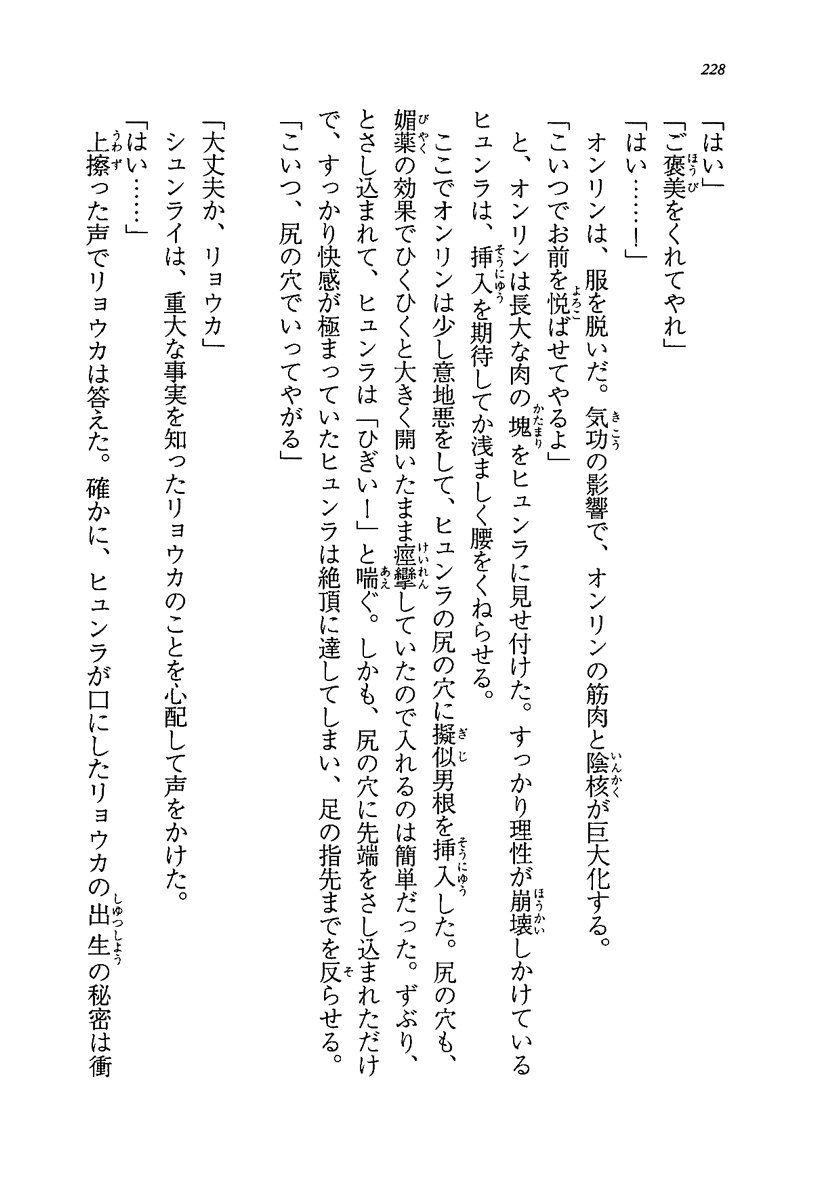 228
「はい」
「ご褒美をくれてやれ」
「はい……！」
オンリンは、服を脱いだ。気功の影響で、オンリンの筋肉と陰核が巨大化する。
「こいつでお前を悦ばせてやるよ」
と、オンリンは長大な肉の塊をヒュンラに見せ付けた。すっかり理性が崩壊しかけている
ヒュンラは、挿入を期待してか浅ましく腰をくねらせる。
ここでオンリンは少し意地悪をして、ヒュンラの尻の穴に擬似男根を挿入した。尻の穴も、
媚薬の効果でひくひくと大きく開いたまま痙攣していたので入れるのは簡単だった。ずぶり、
とさし込まれて、ヒュンラは「ひぎい！」と喘ぐ。しかも、尻の穴に先端をさし込まれただけ
で、すっかり快感が極まっていたヒュンラは絶頂に達してしまい、足の指先までを反らせる。
「こいつ、尻の穴でいってやがる」
「大丈夫か、リョウカ」
シュンライは、重大な事実を知ったリョウカのことを心配して声をかけた。
「はい……」
上擦った声でリョウカは答えた。確かに、ヒュンラが口にしたリョウカの出生の秘密は衝